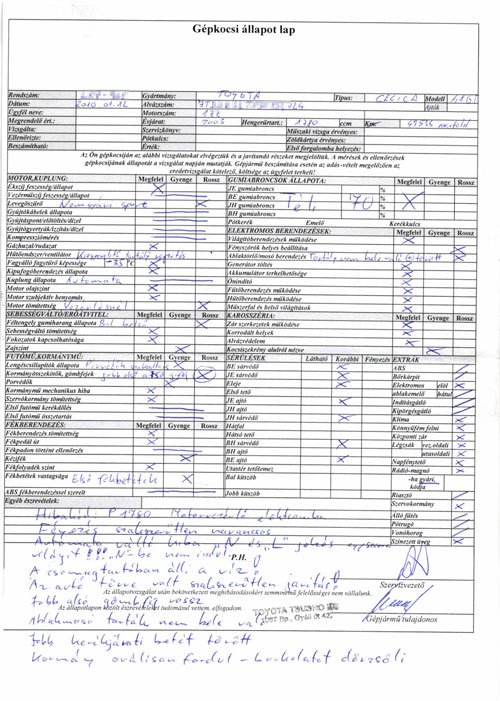 Gépkocsi állapot lap
Rendszám: Gyártmány: TOYOTA Típus: CELICA Modell
Dátum: 2010 01.12 Alvázszám: Ajtók
Ügyfél neve: Motorszám:
Megrendelő ért.: Évjárat: 2003 Hengerűrtart.: 1780 ccm
Vizsgálta: Szervizkönyv: Műszaki vizsga érvényes:
Ellenőrizte: Pótkulcs: Zöldkártya érvényes:
Beszámítható: Eredet: Első forgalomba helyezés:
Az Ön gépkocsiján az alábbi vizsgálatokat elvégeztük és a javítandó részeket megjelöltük. A mérések és ellenőrzések
gépkocsijának állapotát a vizsgálat napján mutatják. Gépjármű beszámítása esetén az adás-vételt megelőzően az
eredetvizsgálat kötelező, költsége az ügyfelet terheli!
MOTOR,KUPLUNG: Megfelel Gyenge Rossz
Ékszíj feszesség/állapot
Vezérműszíj feszesség/állapot
Levegőszűrő Nem gyári sport
Gyújtókábelek állapota
Gyújtáspont/előtöltés/dízel
Gyújtógyertyák/izzítás/dízel
Kompressziómérés
Gázhuzal/rudazat
Hűtőrendszer/ventilátor
Fagyálló fagytűrő képessége -35°C
Kipufogóberendezés állapota
Kuplung állapota Automata
Motor olajszint
Motor szubjektív benyomás
Motor tömítettség
SEBESSÉGVÁLTÓ/ERŐÁTVITEL: Megfelel Gyenge Rossz
Féltengely gumiharang állapota Bal belső
Sebességváltó tömítettség
Fokozatok kapcsolhatósága
Zajszint
FUTÓMŰ/KORMÁNYMŰ: Megfelel Gyenge Rossz
Lengéscsillapítók állapota
Kormányösszekötők, gömbfejek
Porvédők
Kormánymű mechanikus hiba
Szervokormány tömítettség
Első futómű kerékdőlés
Első futómű összetartás
FÉKBERENDEZÉS: Megfelel Gyenge Rossz
Fékberendezés tömítettség
Fékpedál út
Fékpadon történt ellenőrzés
Kézifék
Fékfolyadék szint
Fékbetétek vastagsága Első fékbetétek
ABS fékberendezéssel szerelt
GUMIABRONCSOK ÁLLAPOTA: Megfelel Gyenge Rossz
JE gumiabroncs %
BE gumiabroncs %
JH gumiabroncs Tél 70 %
BH gumiabroncs %
Pótkerék Emelő Kerékkulcs
ELEKTROMOS BERENDEZÉSEK: Megfelel Gyenge Rossz
Világítóberendezések működése
Fényszórók helyes beállítása
Ablaktörlő/mosó berendezés
Generátor töltés
Akkumulátor terhelhetősége
Önindító
Fűtőberendezés működése
Hűtőberendezés működése
Műszerfal és belső világítások
KAROSSZÉRIA: Megfelel Gyenge Rossz
Zár szerkezetek működése
Korrodált helyek
Alvázvédelem
Kocsiszekrény alulról nézve
SÉRÜLÉSEK Látható Korábbi Fényezés
BE sárvédő
JE sárvédő
Eleje
Első tető
JE ajtó
JH ajtó
JH sárvédő
Hátfal
Hátsó tető
BH sárvédő
BH ajtó
BE ajtó
Utastér tetőlemez
Bal küszöb
Jobb küszöb
EXTRÁK
ABS
Bőrkárpit
Elektromos elöl
ablakemelő hátul
Indításgátló
Kipörgésgátló
Klíma
Könnyűfém felni
Központi zár
Légzsák vez.oldali
utasoldali
Napfénytető
Rádió-magnó
-ha gyári,
kódja
Riasztó
Szervokormány
Álló fűtés
Pótrugó
Vonóhorog
Színezett üveg
Egyéb észrevételek:
Hibakód: P 1780 Motorvezérlő elektronika
Fényezés szakszerűtlen
Automata váltó hiba "N és „L" jelzés egyszerre
világít !!! „N"-be nem indul. P.H.
A csomagtartóban áll a víz!
Az autó törve volt szakszerűtlen javítás! Szervizvezető
Az állapotvizsgálat után bekövetkezett meghibásodásokért semminemű felelősséget nem vállalunk.
Jobb alsó gömbfej rossz
Az állapotlapon közölt észrevételeket tudomásul vettem, elfogadom
TOYOTA TSUSHO
1097 Bp., Gyáli út 42.
Gépjármű tulajdonos
Ablakmosó tartály nem bele való
Jobb kerékjárati betét törött
Kormány oválisan fordul - burkolatot dörzsöli